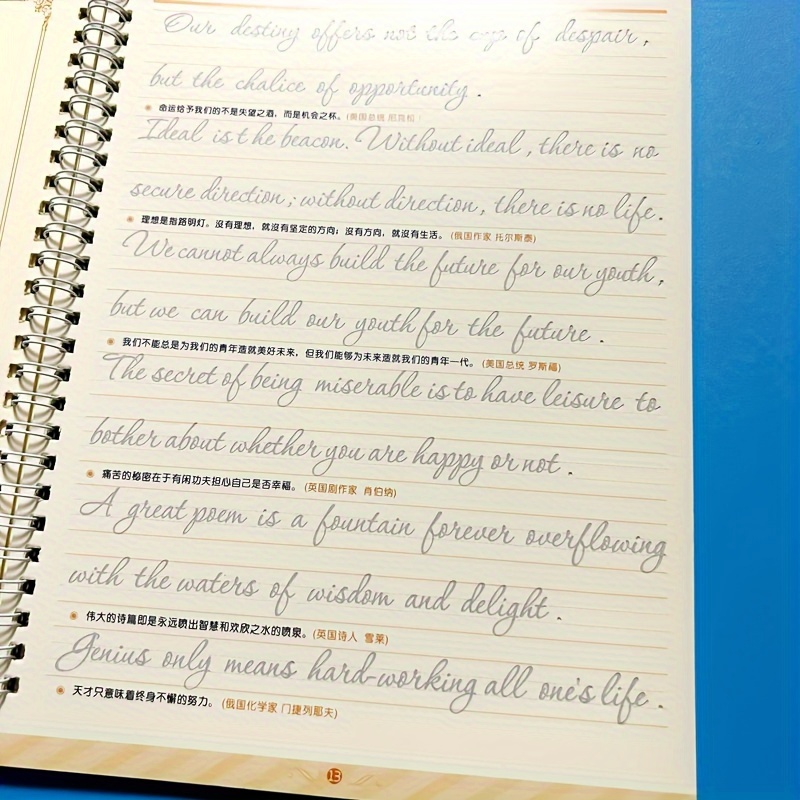 Our destiny offers not the cup of despair,
but the chalice of opportunity.
命运给予我们的不是失望之酒，而是机会之杯。(美国总统 尼克松)
Ideal is the beacon. Without ideal, there is no
secure direction; without direction, there is no life.
理想是指路明灯。没有理想，就没有坚定的方向；没有方向，就没有生活。(俄国作家 托尔斯泰)
We cannot always build the future for our youth,
but we can build our youth for the future.
我们不能总是为我们的青年造就美好未来，但我们能够为未来造就我们的青年一代。(美国总统 罗斯福)
The secret of being miserable is to have leisure to
bother about whether you are happy or not.
痛苦的秘密在于有闲功夫担心自己是否幸福。(英国剧作家 肖伯纳)
A great poem is a fountain forever overflowing
with the waters of wisdom and delight.
伟大的诗篇即是永远喷出智慧和欢欣之水的喷泉。(英国诗人 雪莱)
Genius only means hard-working all one's life.
天才只意味着终身不懈的努力。(俄国化学家 门捷列耶夫)
13